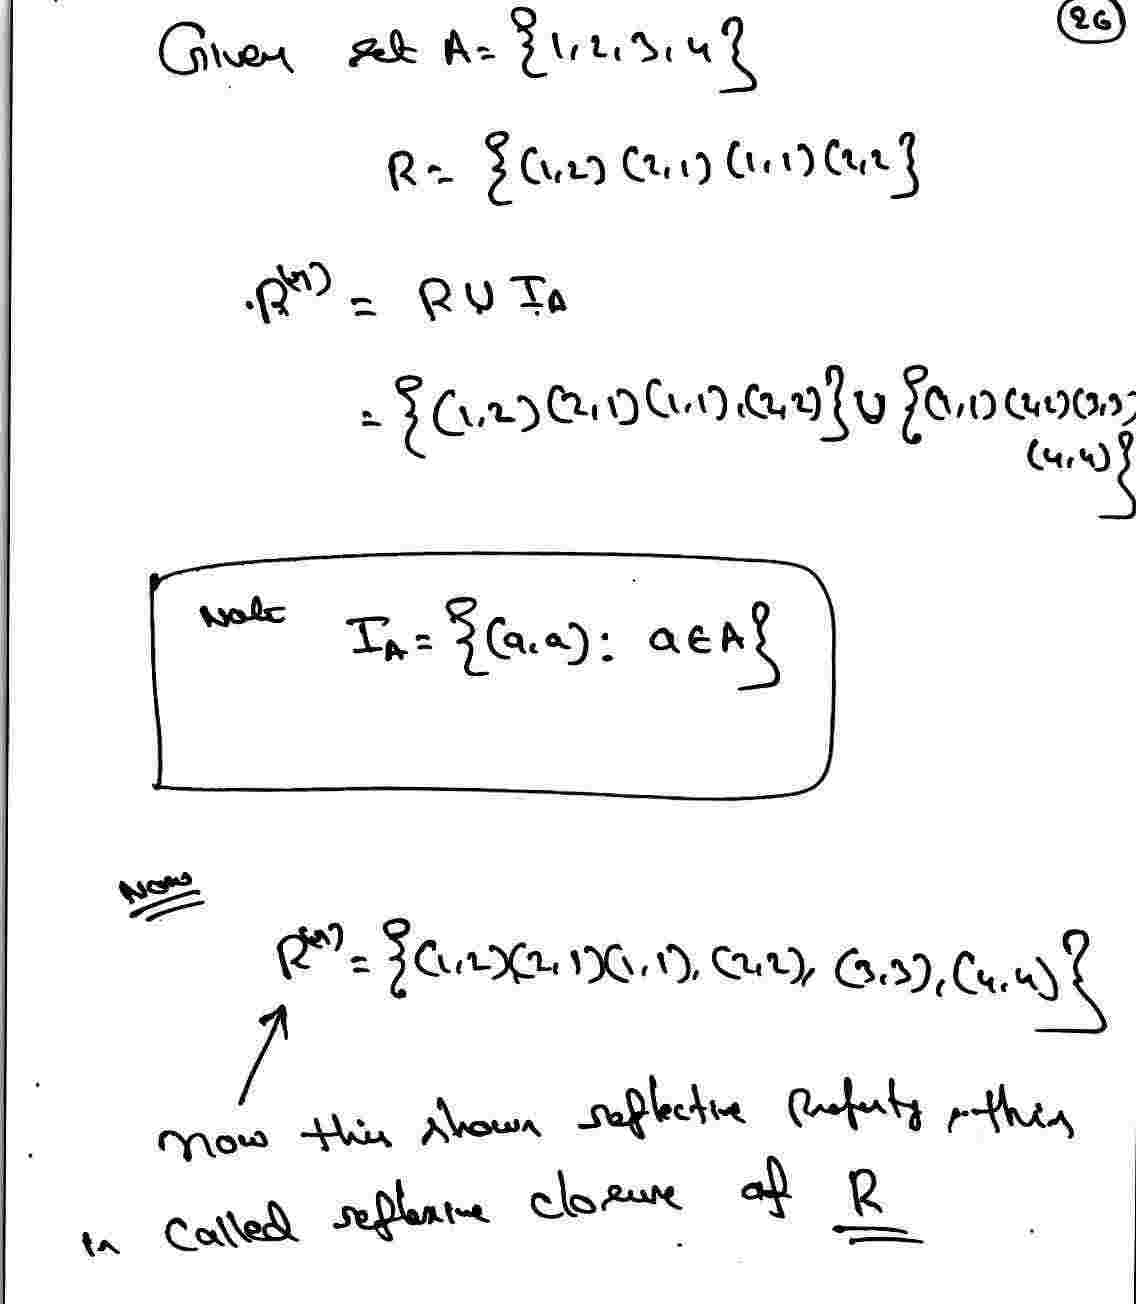 26
Given set A = {1,2,3,4}
R = {(1,2) (2,1) (1,1) (2,2}
R^(r) = R ∪ I_A
= {(1,2) (2,1) (1,1),(2,2)} ∪ {(1,1) (2,2) (3,3)
(4,4)}
Note
I_A = {(a,a): a ∈ A}
Now
R^(r) = {(1,2)(2,1)(1,1), (2,2), (3,3), (4,4)}
now this shows reflective Property this
is called reflexive closure of R